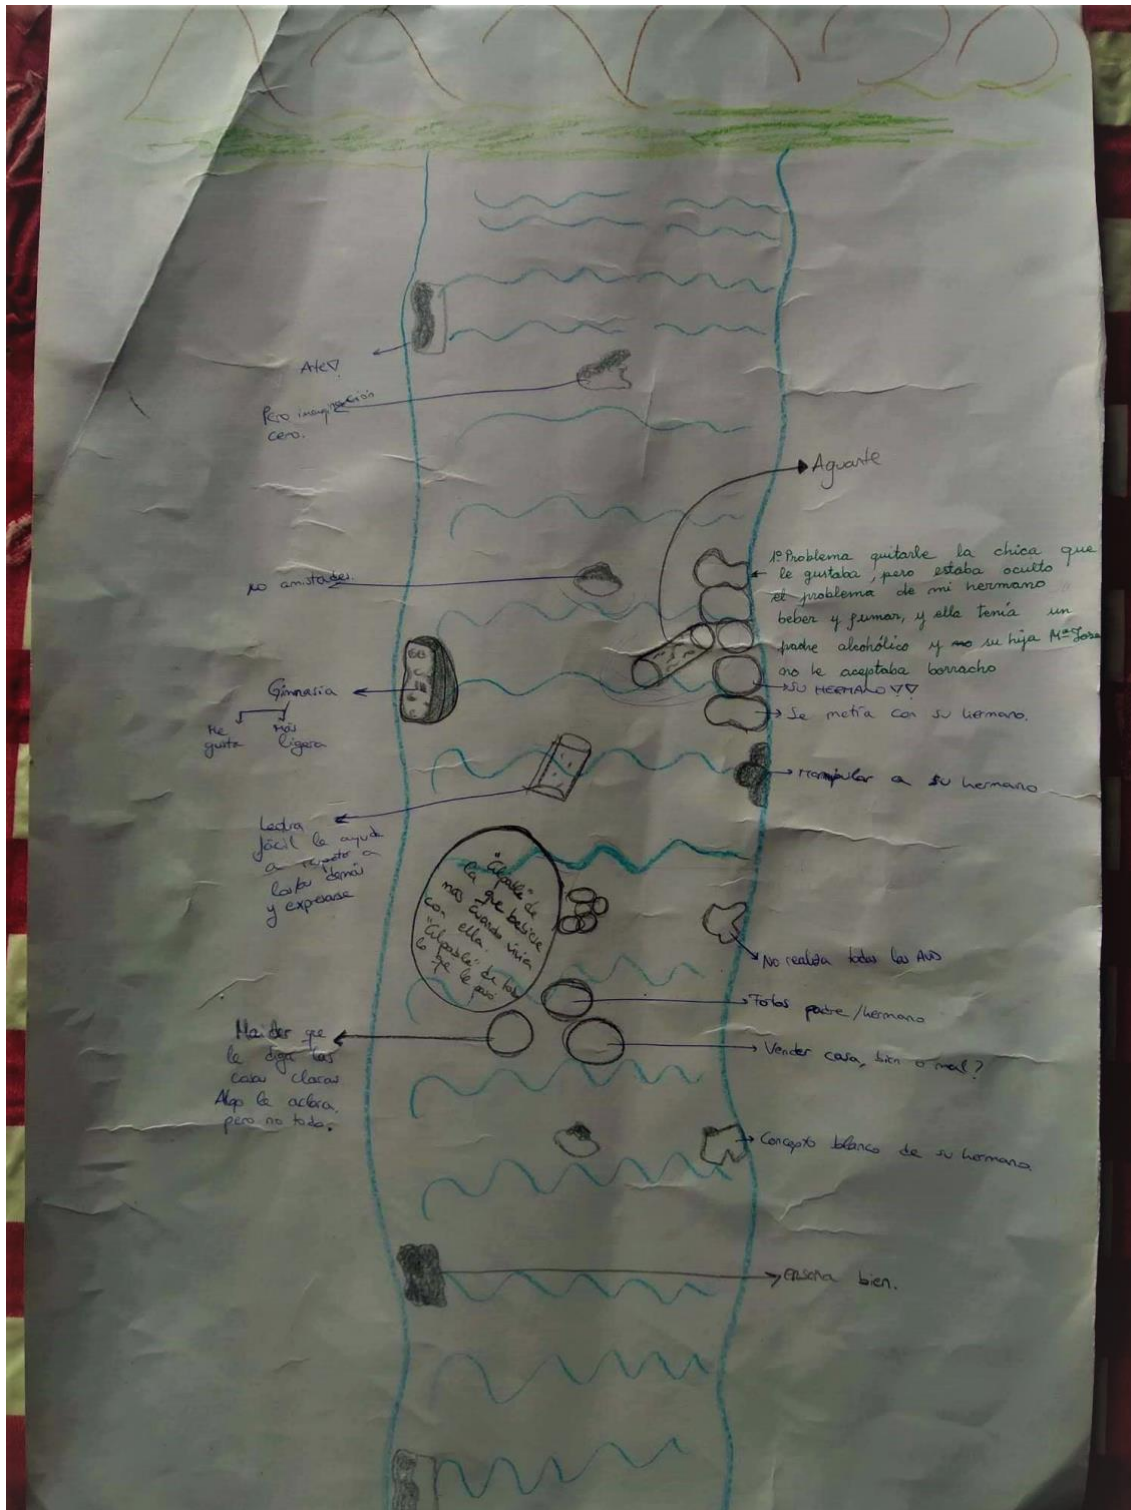 Arte▽.
Pero imaginación
cero.
Aguante
no amistades.
1º Problema quitarle la chica que
le gustaba, pero estaba oculto
el problema de mi hermano
beber y fumar, y ella tenía un
padre alcohólico y su hija Mª Jose
no le aceptaba borracho
SU HERMANO ▽▽
Se metía con su hermano.
Gimnasia
Me Más
gusta ligera
Manipular a su hermano
Lectura
fácil le ayuda
a respeto a
demás
y expresarse
"Culpable" de
la que bebiese
mas cuando vivia
con ella.
"Culpable" de todo
lo que le pasó
No realiza todas las AVD
Fotos padre/hermano
Maider que
le diga las
cosas claras
Algo le aclara,
pero no todo.
Vender casa, bien o mal?
Concepto blanco de su hermana
enseña bien.